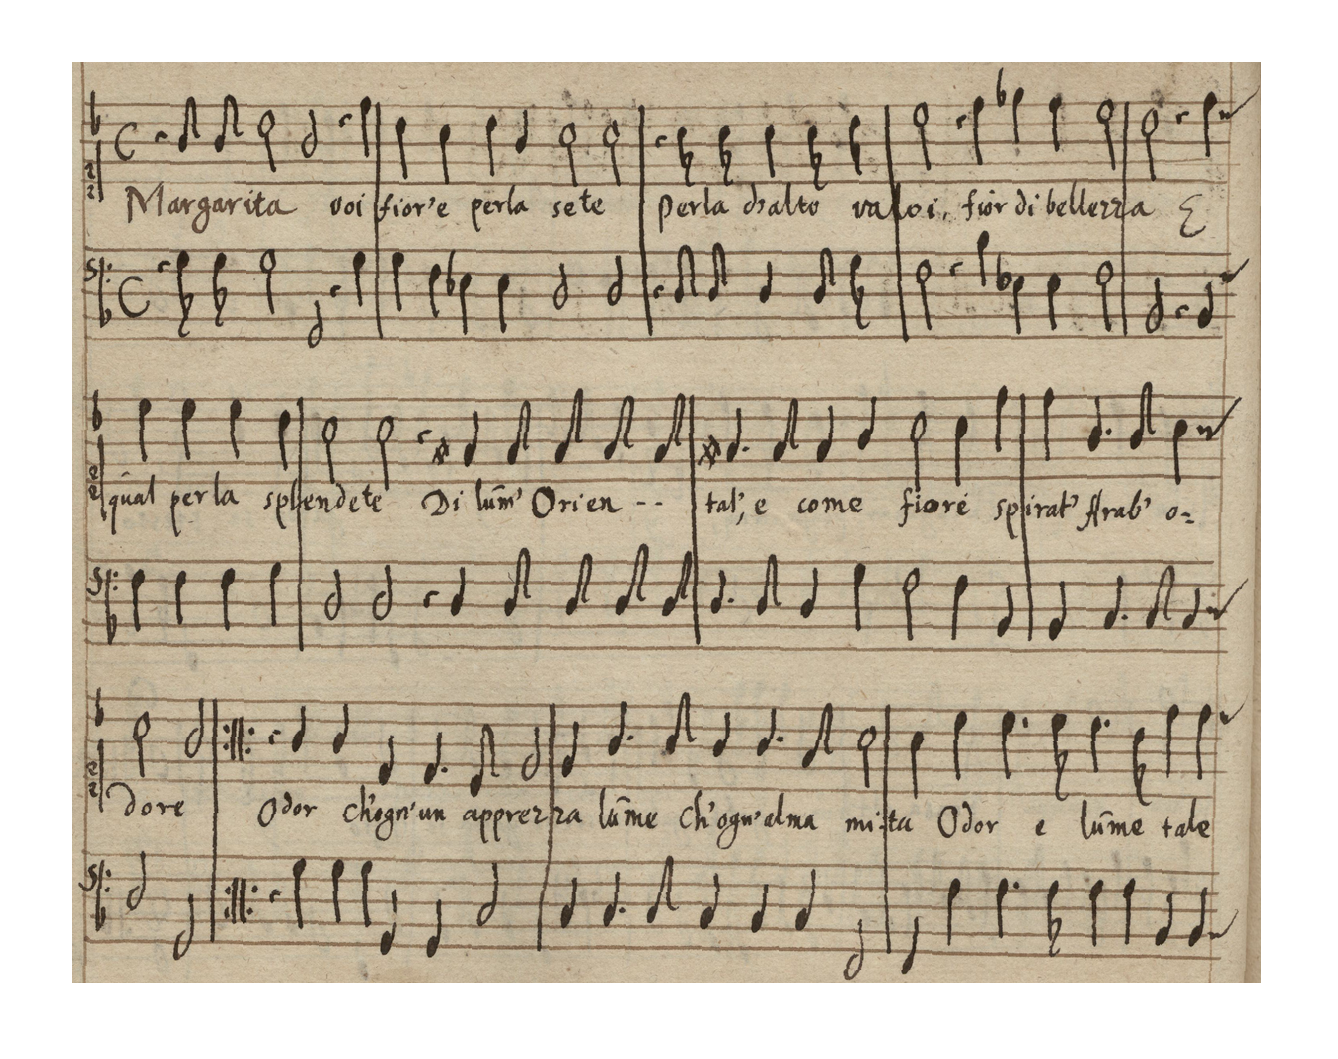 Margarita voi fior'e perla sete Perla d'alto valoi, fior di bellezza E
qũal perla splendete Di lum̃' Orien -- tal', e come fiore spirat' Arab' o=
dore Odor ch'ogn'un apprezza lum̃e Ch'ogn'alma mi:ta Odor e lum̃e tale